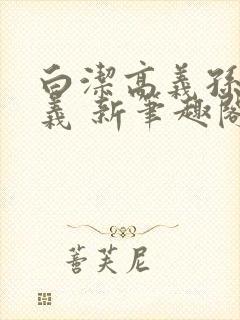 白潔高義孫
義 新筆趣閣
善芙尼